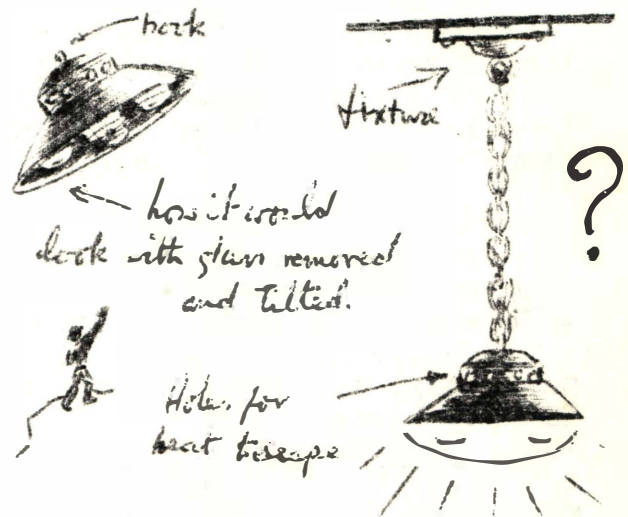 hook
fixture
?
how it would
look with glass removed
and tilted.
Holes for
heat Escape